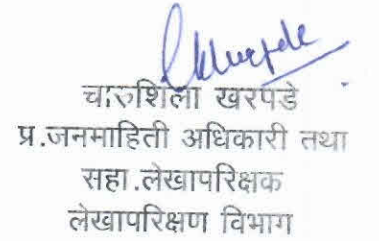 चारुशिला खरपडे
प्र.जनमाहिती अधिकारी तथा
सहा.लेखापरिक्षक
लेखापरिक्षण विभाग